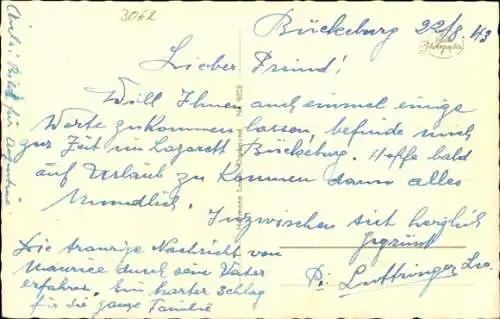 3062
Bückeburg 22/8.43
Lieber Freund!
Will Ihnen auch einmal einige
Worte zukommen lassen, befinde mich
zur Zeit im Lazarett Bückeburg. Hoffe bald
auf Urlaub zu kommen dann alles
Mundlich. Inzwischen seit herzlich
gegrüsst
Die traurige Nachricht von
Maurice durch sein Vater
erfahren. Ein harter Schlag
für die ganze Familie
Luttringer